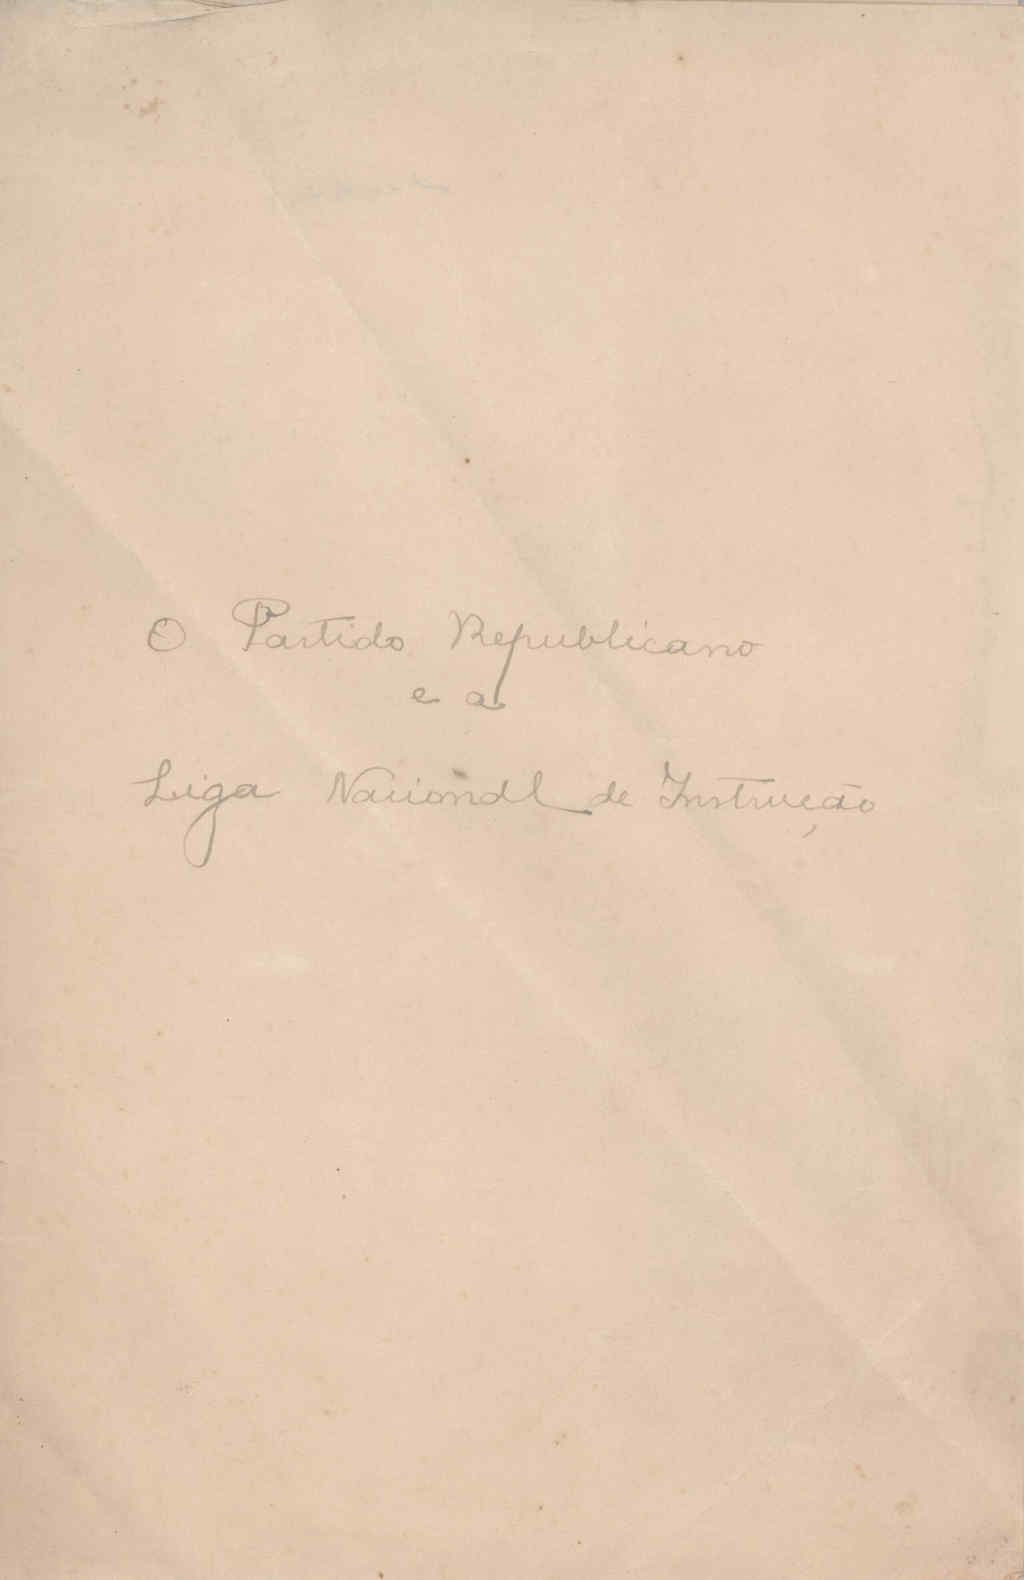 O Partido Republicano
e a
Liga Nacional de Instrucção